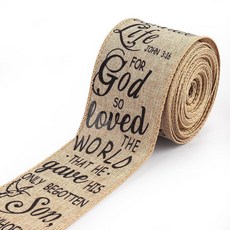 Life
JOHN 3:16
FOR
God
SO
loved
THE
WORLD
THAT HE
gave HIS
ONLY BEGOTTEN
Son,